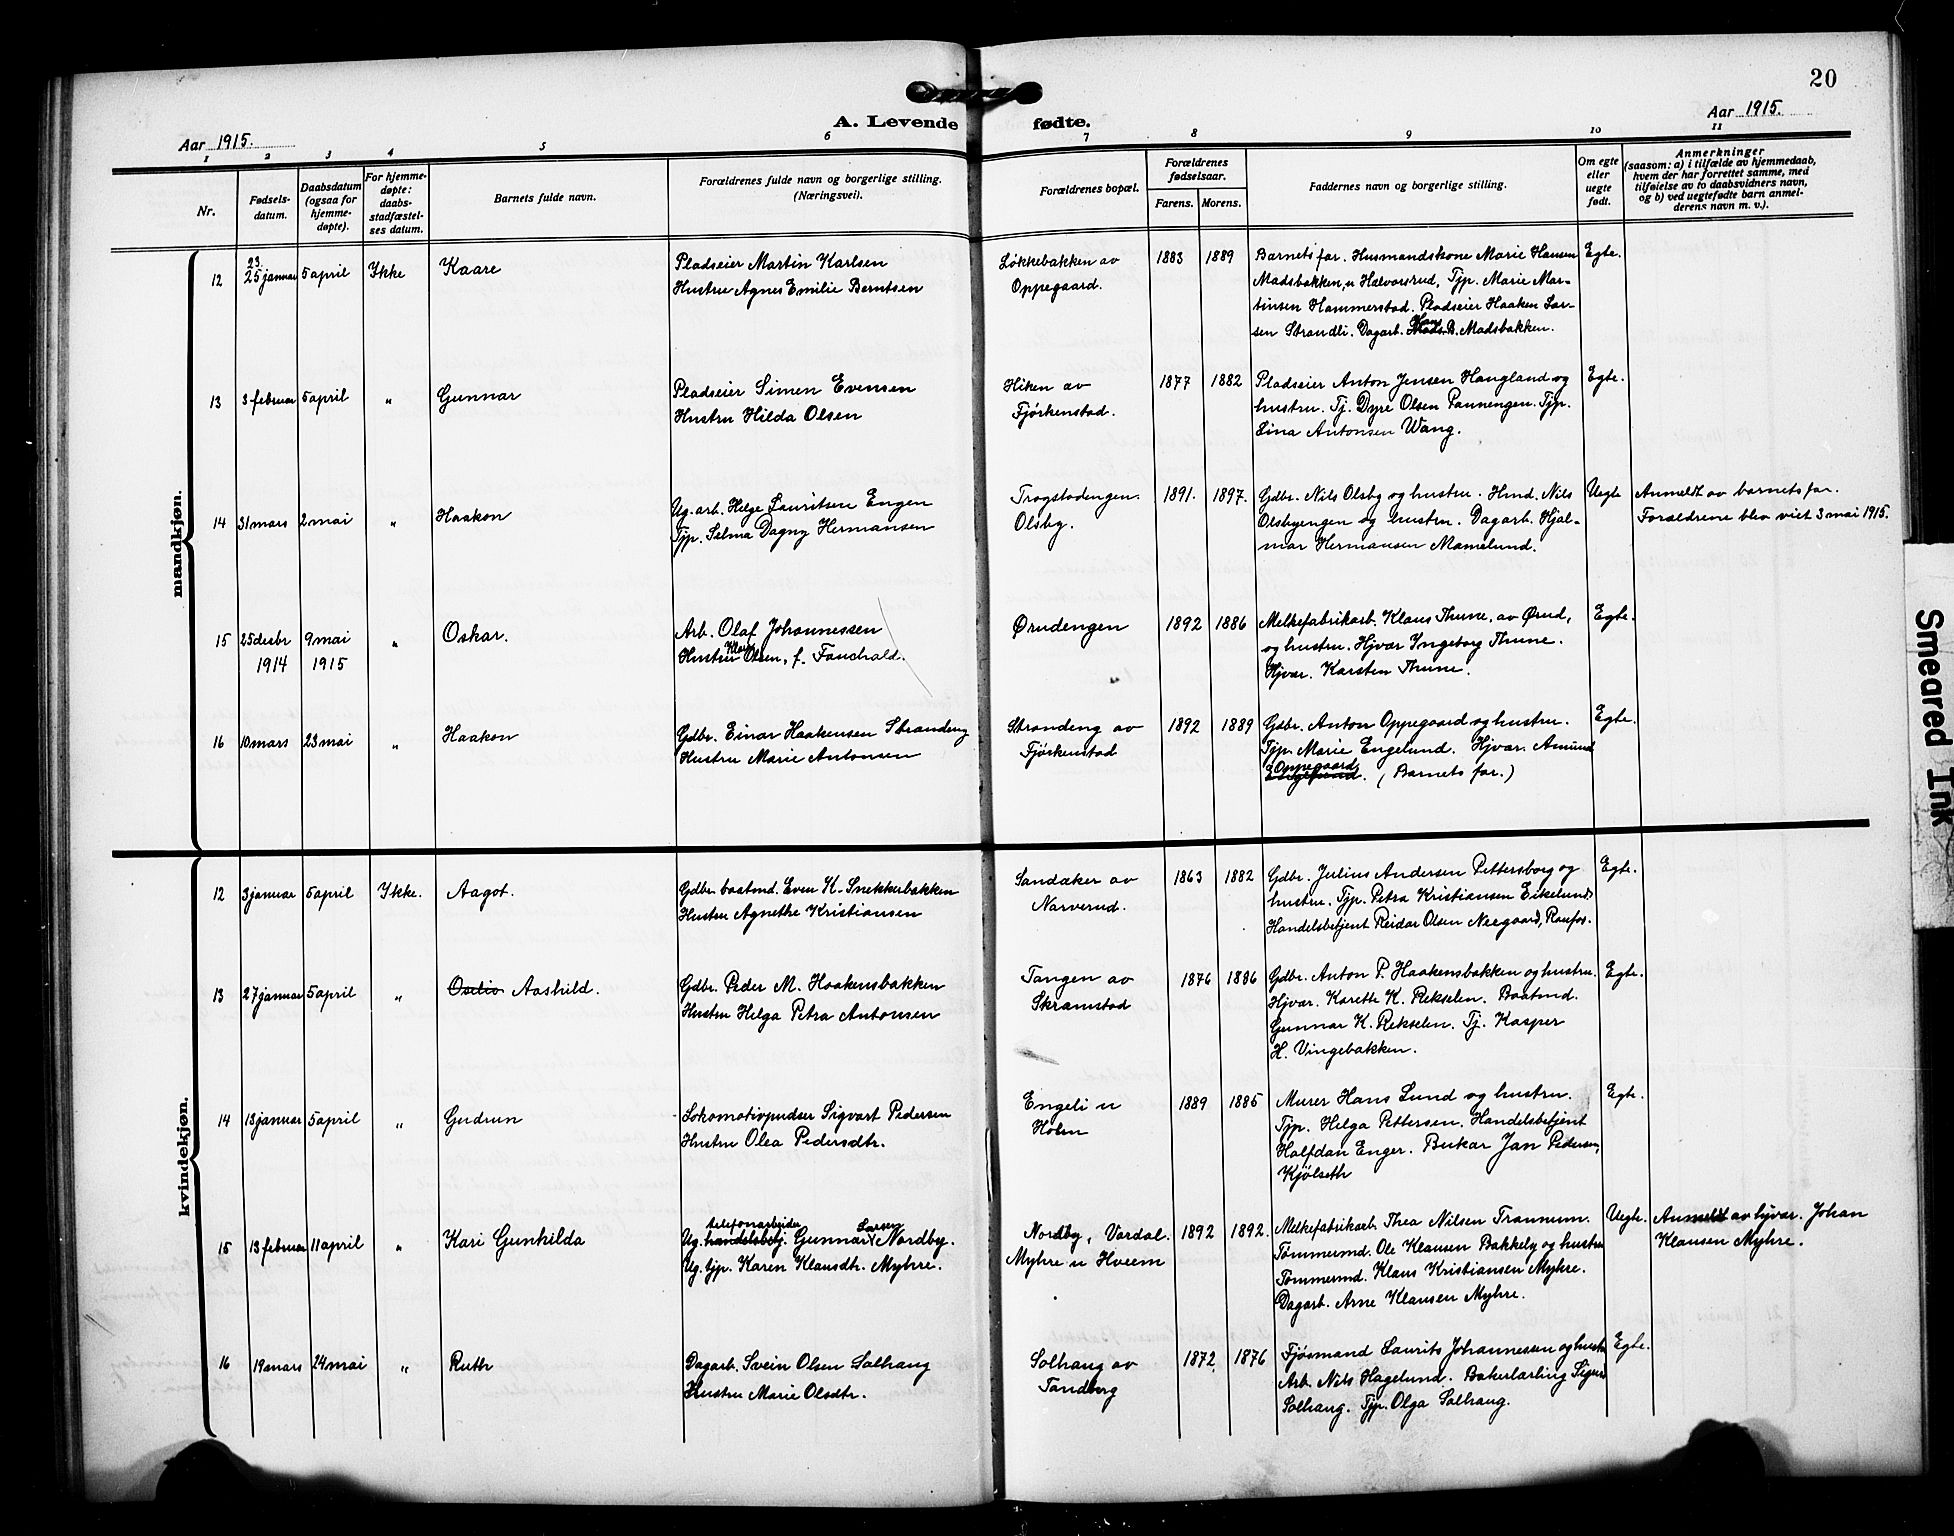 20
A. Levende fødte.
Aar 1915.
Aar 1915.
1 2 3 4 5 6 7 8 9 10 11
Nr.
Fødsels-
datum.
Daabsdatum
(ogsaa for
hjemme-
døpte).
For hjemme-
døpte:
daabs-
stadfæstel-
ses datum.
Barnets fulde navn.
Forældrenes fulde navn og borgerlige stilling.
(Næringsvei).
Forældrenes bopæl.
Forældrenes
fødselsaar.
Farens. Morens.
Faddernes navn og borgerlige stilling.
Om egte
eller
uegte
født.
Anmerkninger
(saasom: a) i tilfælde av hjemmedaab,
hvem der har forrettet samme, med
tilføielse av to daabsvidners navn,
og b) ved uegtefødte barn anmel-
derens navn m. v.).
mandkjøn.
12
23.
25 januar
5 april
Ikke
Kaare
Pladseier Martin Karlsen
Hustru Agnes Emilie Berntsen
Løkkebakken av
Oppegaard.
1883
1889
Barnets far. Husmandskone Marie Hansen
Madsbakken, u Halvorsrud, Tjp. Marie Mar-
tinsen Hammerstad. Pladseier Haaken Lar-
sen Strandli. Dagarb. Hans B. Madsbakken.
Egte.
13
3 februar
5 april
"
Gunnar
Pladseier Simen Evensen
Hustru Hilda Olsen
Hiken av
Fjørkenstad.
1877
1882
Pladseier Anton Jensen Haugland og
hustru. Tj. Dyre Olsen Pannengen. Tjp.
Lina Antonsen Wang.
Egte.
14
31 mars
2 mai
"
Haakon
Ug. arb. Helge Lauritsen Engen
Tjp. Selma Dagny Hermansen
Trogstadengen.
Olsby.
1891.
1897.
Gdbr. Nils Olsby og hustru. Hmd. Nils
Olsbyengen og hustru. Dagarb. Hjal-
mar Hermansen Mamelund.
Uegte
Anmeldt av barnets far.
Forældrene blev viet 3 mai 1915.
15
25 desbr
1914
9 mai
1915
"
Oskar.
Arb. Olaf Johannessen
Hustru Klara Olsen, f. Fauchald.
Ørudengen
"
1892
1886
Melkefabrikarb. Klaus Thune, av Ørud,
og hustru. Hjvær Ingeborg Thune.
Hjvær. Karsten Thune.
Egte.
16
10 mars
23 mai
"
Haakon
Gdbr. Einar Haakensen Strandeng
Hustru Marie Antonsen
Strandeng av
Fjørkenstad
1892
1889
Gdbr. Anton Oppegaard og hustru.
Tjp. Marie Engelund. Hjvær. Amund
Oppegaard
Engelund. (Barnets far.)
Egte.
kvindekjøn.
12
3 januar
5 april
Ikke.
Aagot.
Gdbr. baatmd. Even K. Snekkerbakken
Hustru Agnethe Kristiansen
Sandaker av
Narverud.
1863
1882
Gdbr. Julius Andersen Pettersborg og
hustru. Tjp. Petra Kristiansen Eikelund.
Handelsbetjent Reidar Olsen Neegaard, Raufos.
Egte.
13
27 januar
5 april
"
Aashild.
Gdbr. Peder M. Haakensbakken
Hustru Helga Petra Antonsen
Tangen av
Skramstad
1876
1886
Gdbr. Anton P. Haakensbakken og hustru.
Hjvær. Karette K. Rekselen. Baatmd.
Gunnar K. Rekselen. Tj. Kasper
H. Vingebakken.
Egte.
14
13 januar
5 april
"
Gudrun
Lokomotivpudser Sigvart Pedersen
Hustru Olea Pedersdtr.
Engeli u
Holm
1889
1885
Murer Hans Lund og hustru.
Tjp. Helga Pettersen. Handelsbetjent
Halfdan Enger. Buskar Jan Pedersen,
Kjølseth
Egte.
15
13 februar
11 april
"
Kari Gunhilda
telefonarbeider Larsen
Ug. handelsbetj. Gunnar Nordby.
Ug. tjp. Karen Klausdtr. Myhre.
Nordby, Vardal.
Myhre u Hveem
1892
1892.
Melkefabrikarb. Thea Nilsen Trannum.
Tømmermd. Ole Klausen Bakkely og hustru
Tømmermd. Klaus Kristiansen Myhre.
Dagarb. Arne Klausen Myhre.
Uegte.
Anmeldt av hjvær. Johan
Klausen Myhre.
16
19 mars
24 mai
"
Ruth
Dagarb. Svein Olsen Solhaug
Hustru Marie Olsdtr.
Solhaug av
Tandberg
1872
1876
Fjøsmand Laurits Johannessen og hustru
Arb. Nils Hagelund. Bakerlærling Sigurd
Solhaug. Tjp. Olga Solhaug.
Egte.
Smeared Ink